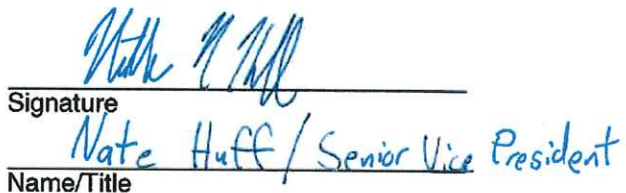 Signature
Nate Huff / Senior Vice President
Name/Title